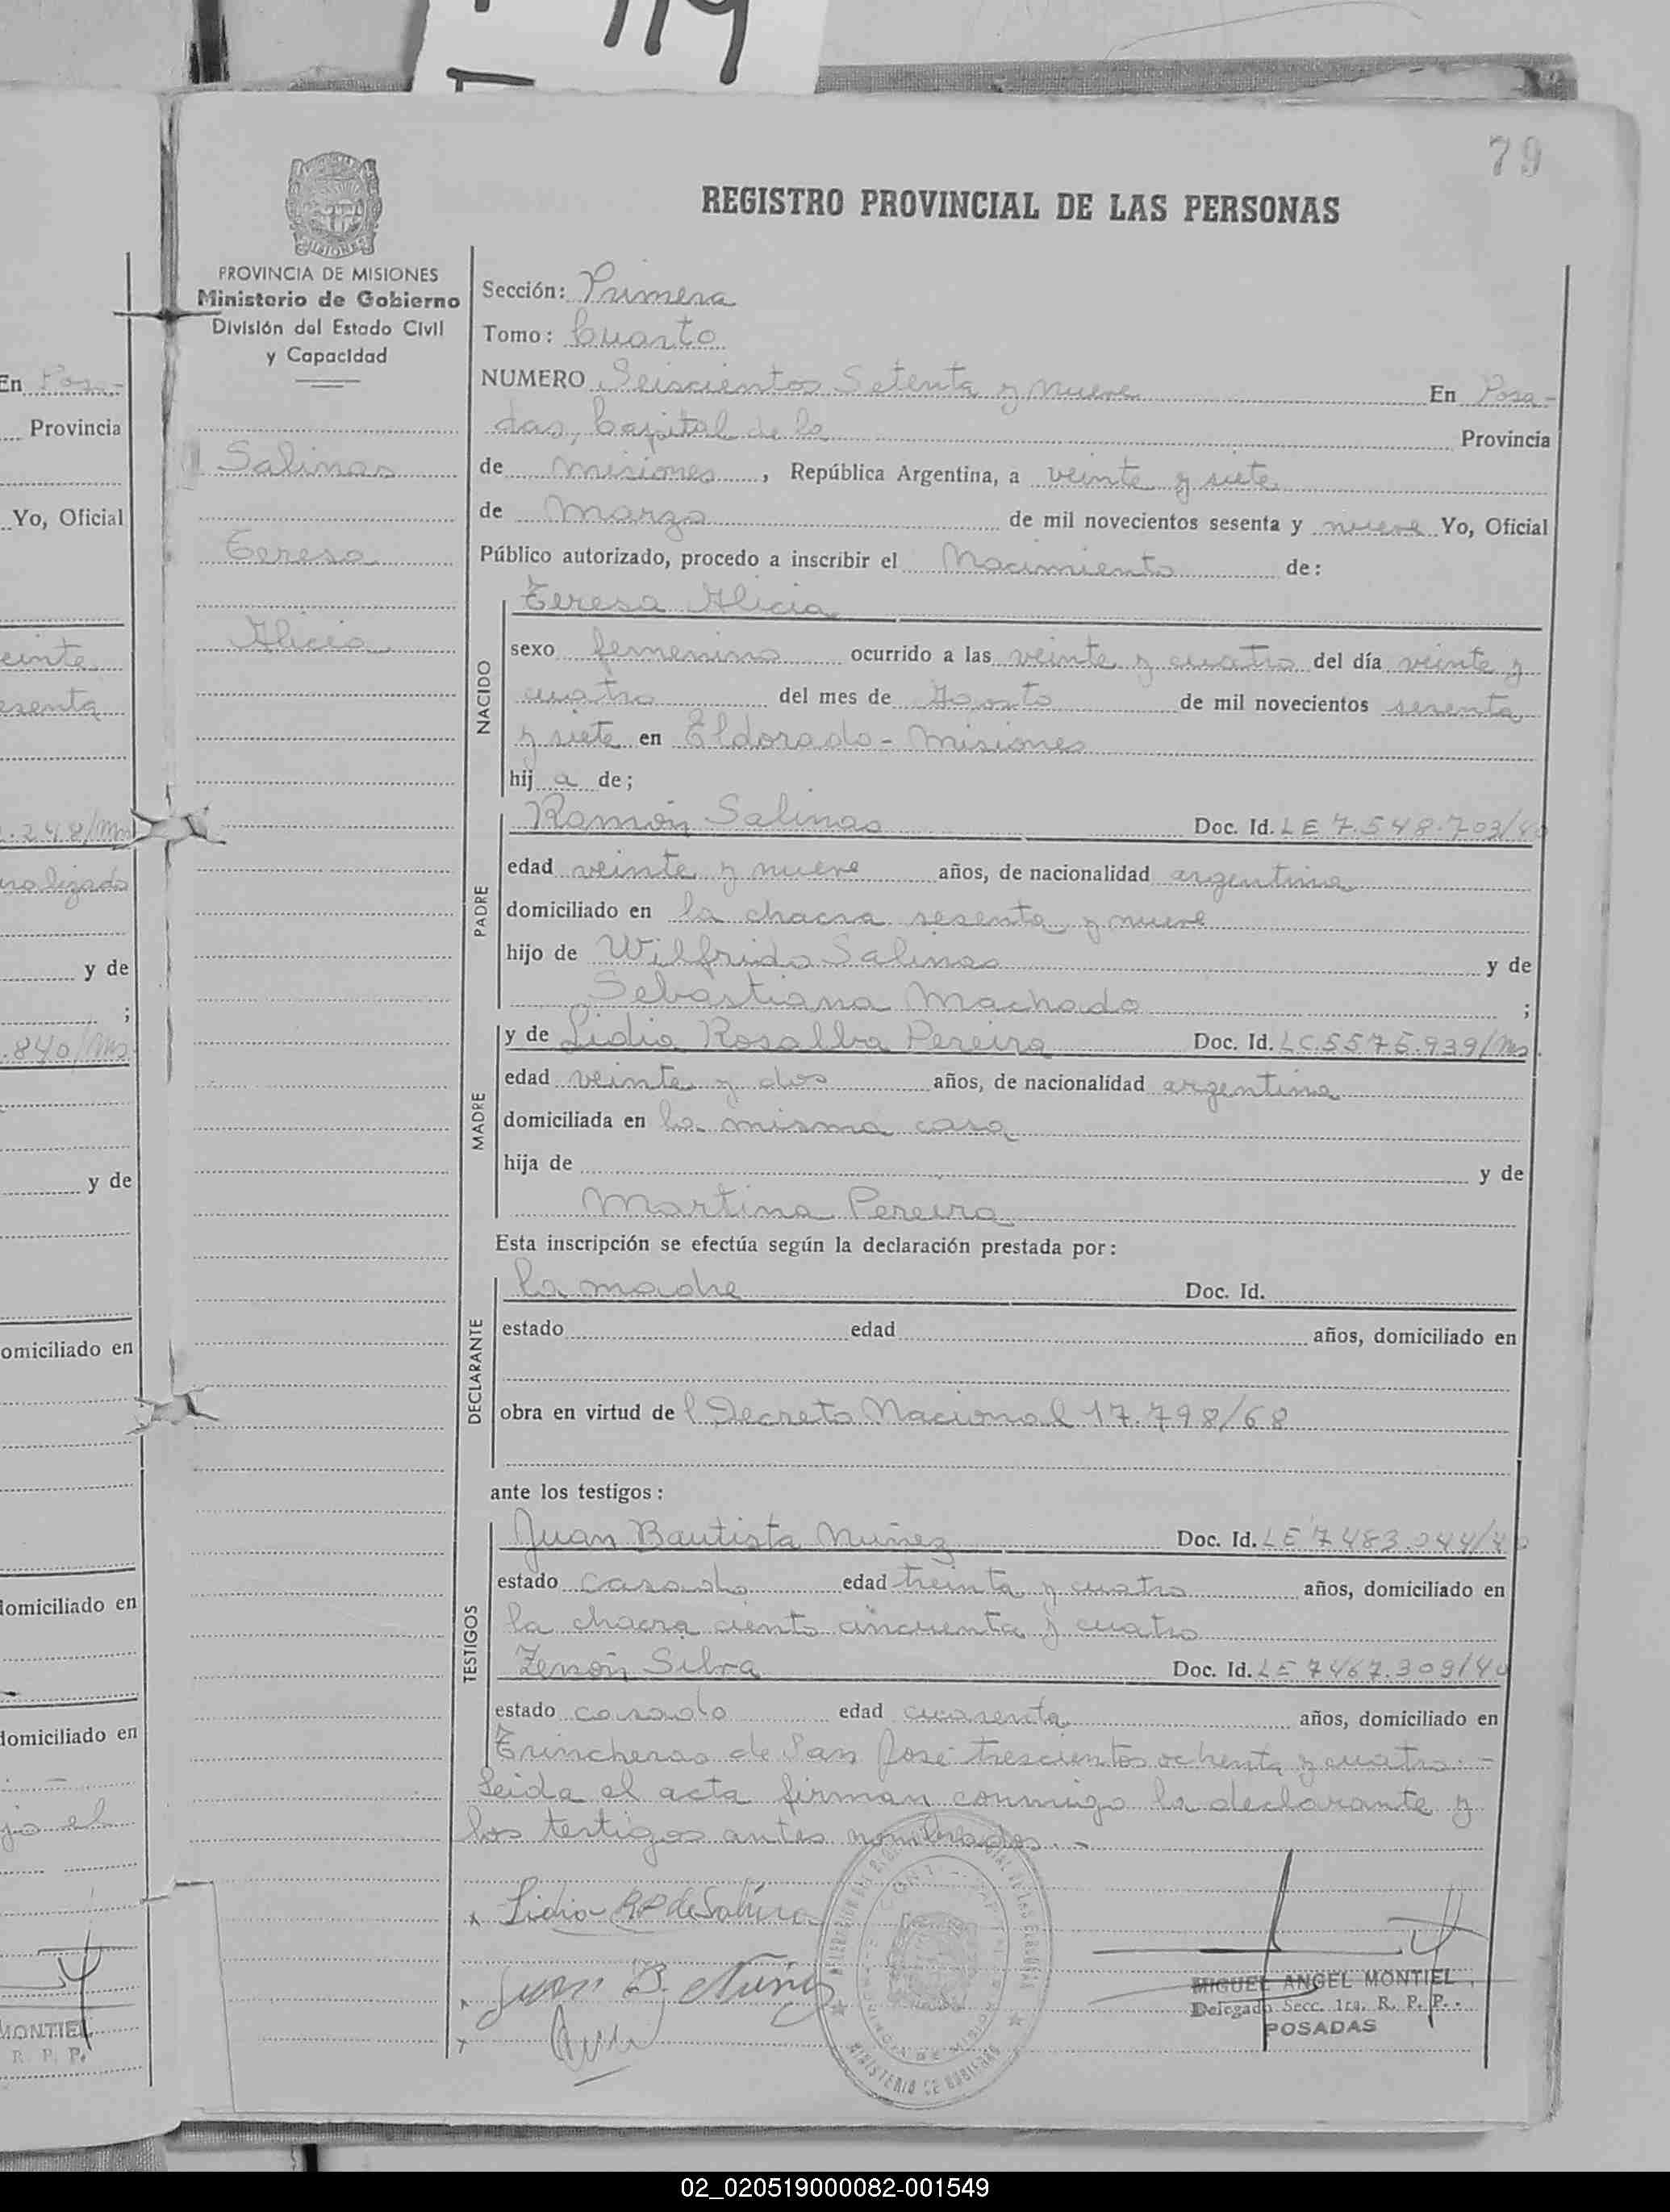 79
REGISTRO PROVINCIAL DE LAS PERSONAS
PROVINCIA DE MISIONES
Ministerio de Gobierno
División del Estado Civil
y Capacidad
Salinas
Teresa
Alicia
Sección: Primera
Tomo: Cuarto
NUMERO Seiscientos Setenta y nueve En Posa-
das, Capital de la Provincia
de misiones, República Argentina, a veinte y siete
de Marzo de mil novecientos sesenta y nueve Yo, Oficial
Público autorizado, procedo a inscribir el Nacimiento de:
NACIDO
Teresa Alicia
sexo femenino ocurrido a las veinte y cuatro del día veinte y
cuatro del mes de Agosto de mil novecientos sesenta
y siete en Eldorado - Misiones
hija de;
PADRE
Ramón Salinas Doc. Id. LE 7.548.703/40
edad veinte y nueve años, de nacionalidad argentina
domiciliado en la chacra sesenta y nueve
hijo de Wilfrido Salinas y de
Sebastiana Machado ;
MADRE
y de Lidia Rosalba Pereira Doc. Id. LC.5575.939/Ms.
edad veinte y dos años, de nacionalidad argentina
domiciliada en la misma casa
hija de y de
Martina Pereira
Esta inscripción se efectúa según la declaración prestada por:
DECLARANTE
la madre Doc. Id.
estado edad años, domiciliado en
obra en virtud del Decreto Nacional 17.798/68
ante los testigos:
TESTIGOS
Juan Bautista Nuñez Doc. Id. LE 7483.044/40
estado casado edad treinta y cuatro años, domiciliado en
la chacra ciento cincuenta y cuatro
Zenón Silva Doc. Id. LE 7467.309/40
estado casado edad cuarenta años, domiciliado en
Trincheras de San José trescientos ochenta y cuatro.-
Leida el acta firman conmigo la declarante y
los testigos antes nombrados.-
Lidia RP de Salinas
Juan B. Nuñez
MINISTERIO DE GOBIERNO
MIGUEL ANGEL MONTIEL
Delegado Secc. 1ra. R. P. P.
POSADAS
En Posa-
Provincia
Yo, Oficial
einte
esenta
.248/Ms
y de
;
.840/Ms
y de
omiciliado en
domiciliado en
domiciliado en
MONTIEL
R. P. P.
02_020519000082-001549